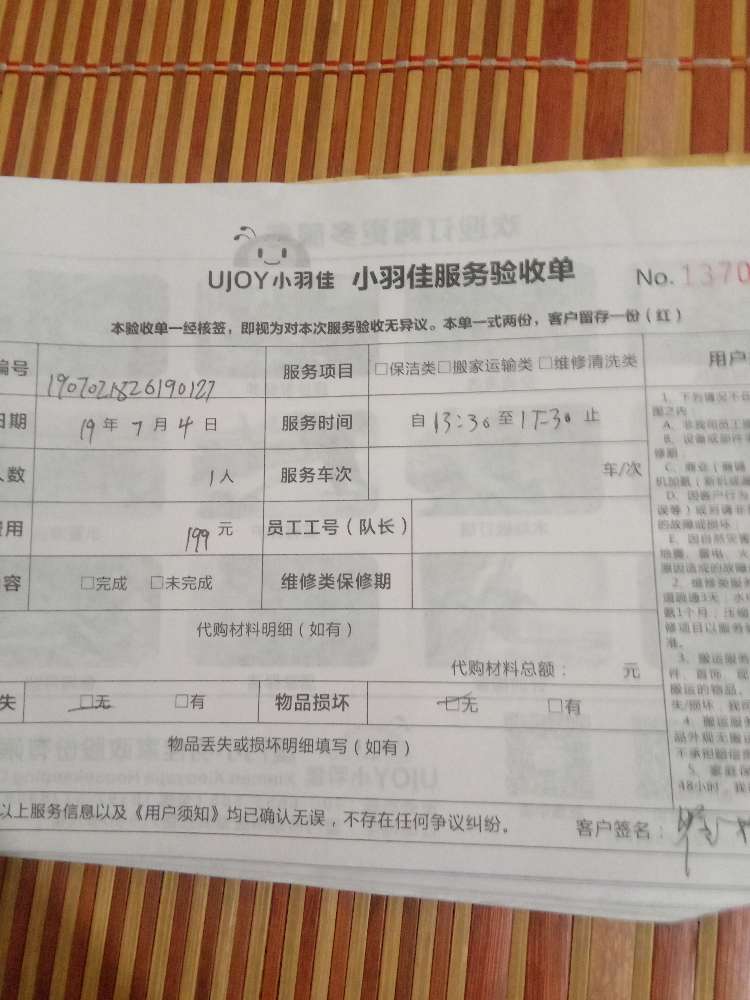 UJOY小羽佳 小羽佳服务验收单 No.1370
本验收单一经核签，即视为对本次服务验收无异议。本单一式两份，客户留存一份（红）
编号 1907021826190127 服务项目 □保洁类□搬家运输类 □维修清洗类
日期 19年7月4日 服务时间 自13:30至17:30止
人数 1人 服务车次 车/次
费用 199元 员工工号（队长）
容 □完成 □未完成 维修类保修期
代购材料明细（如有）
代购材料总额： 元
失 □无 □有 物品损坏 □无 □有
物品丢失或损坏明细填写（如有）
以上服务信息以及《用户须知》均已确认无误，不存在任何争议纠纷。
客户签名：
用户
1、下列情况不
围之内
A、非我司员工
B、设备或部件
修期
D、因客户行为
的故障或损坏；
E、因自然灾害
地震、雷电、火
原因造成的故障
2、维修类服务
道疏通3天；水
氨1个月；压缩
修项目以服务
准。
3、搬运服务
件、首饰、现
搬运的物品，
失/损坏，我
4、搬运服务
品外观无搬
不承担赔偿
5、家庭保
48小时，我